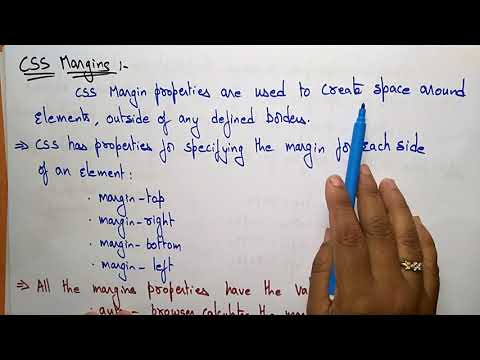 CSS Margins :-
CSS Margin properties are used to create space around
elements, outside of any defined borders.
⇒ CSS has properties for specifying the margin for each side
of an element:
· margin-top
· margin-right
· margin-bottom
· margin-left
⇒ All the margins properties have the
· auto - browser calculates the